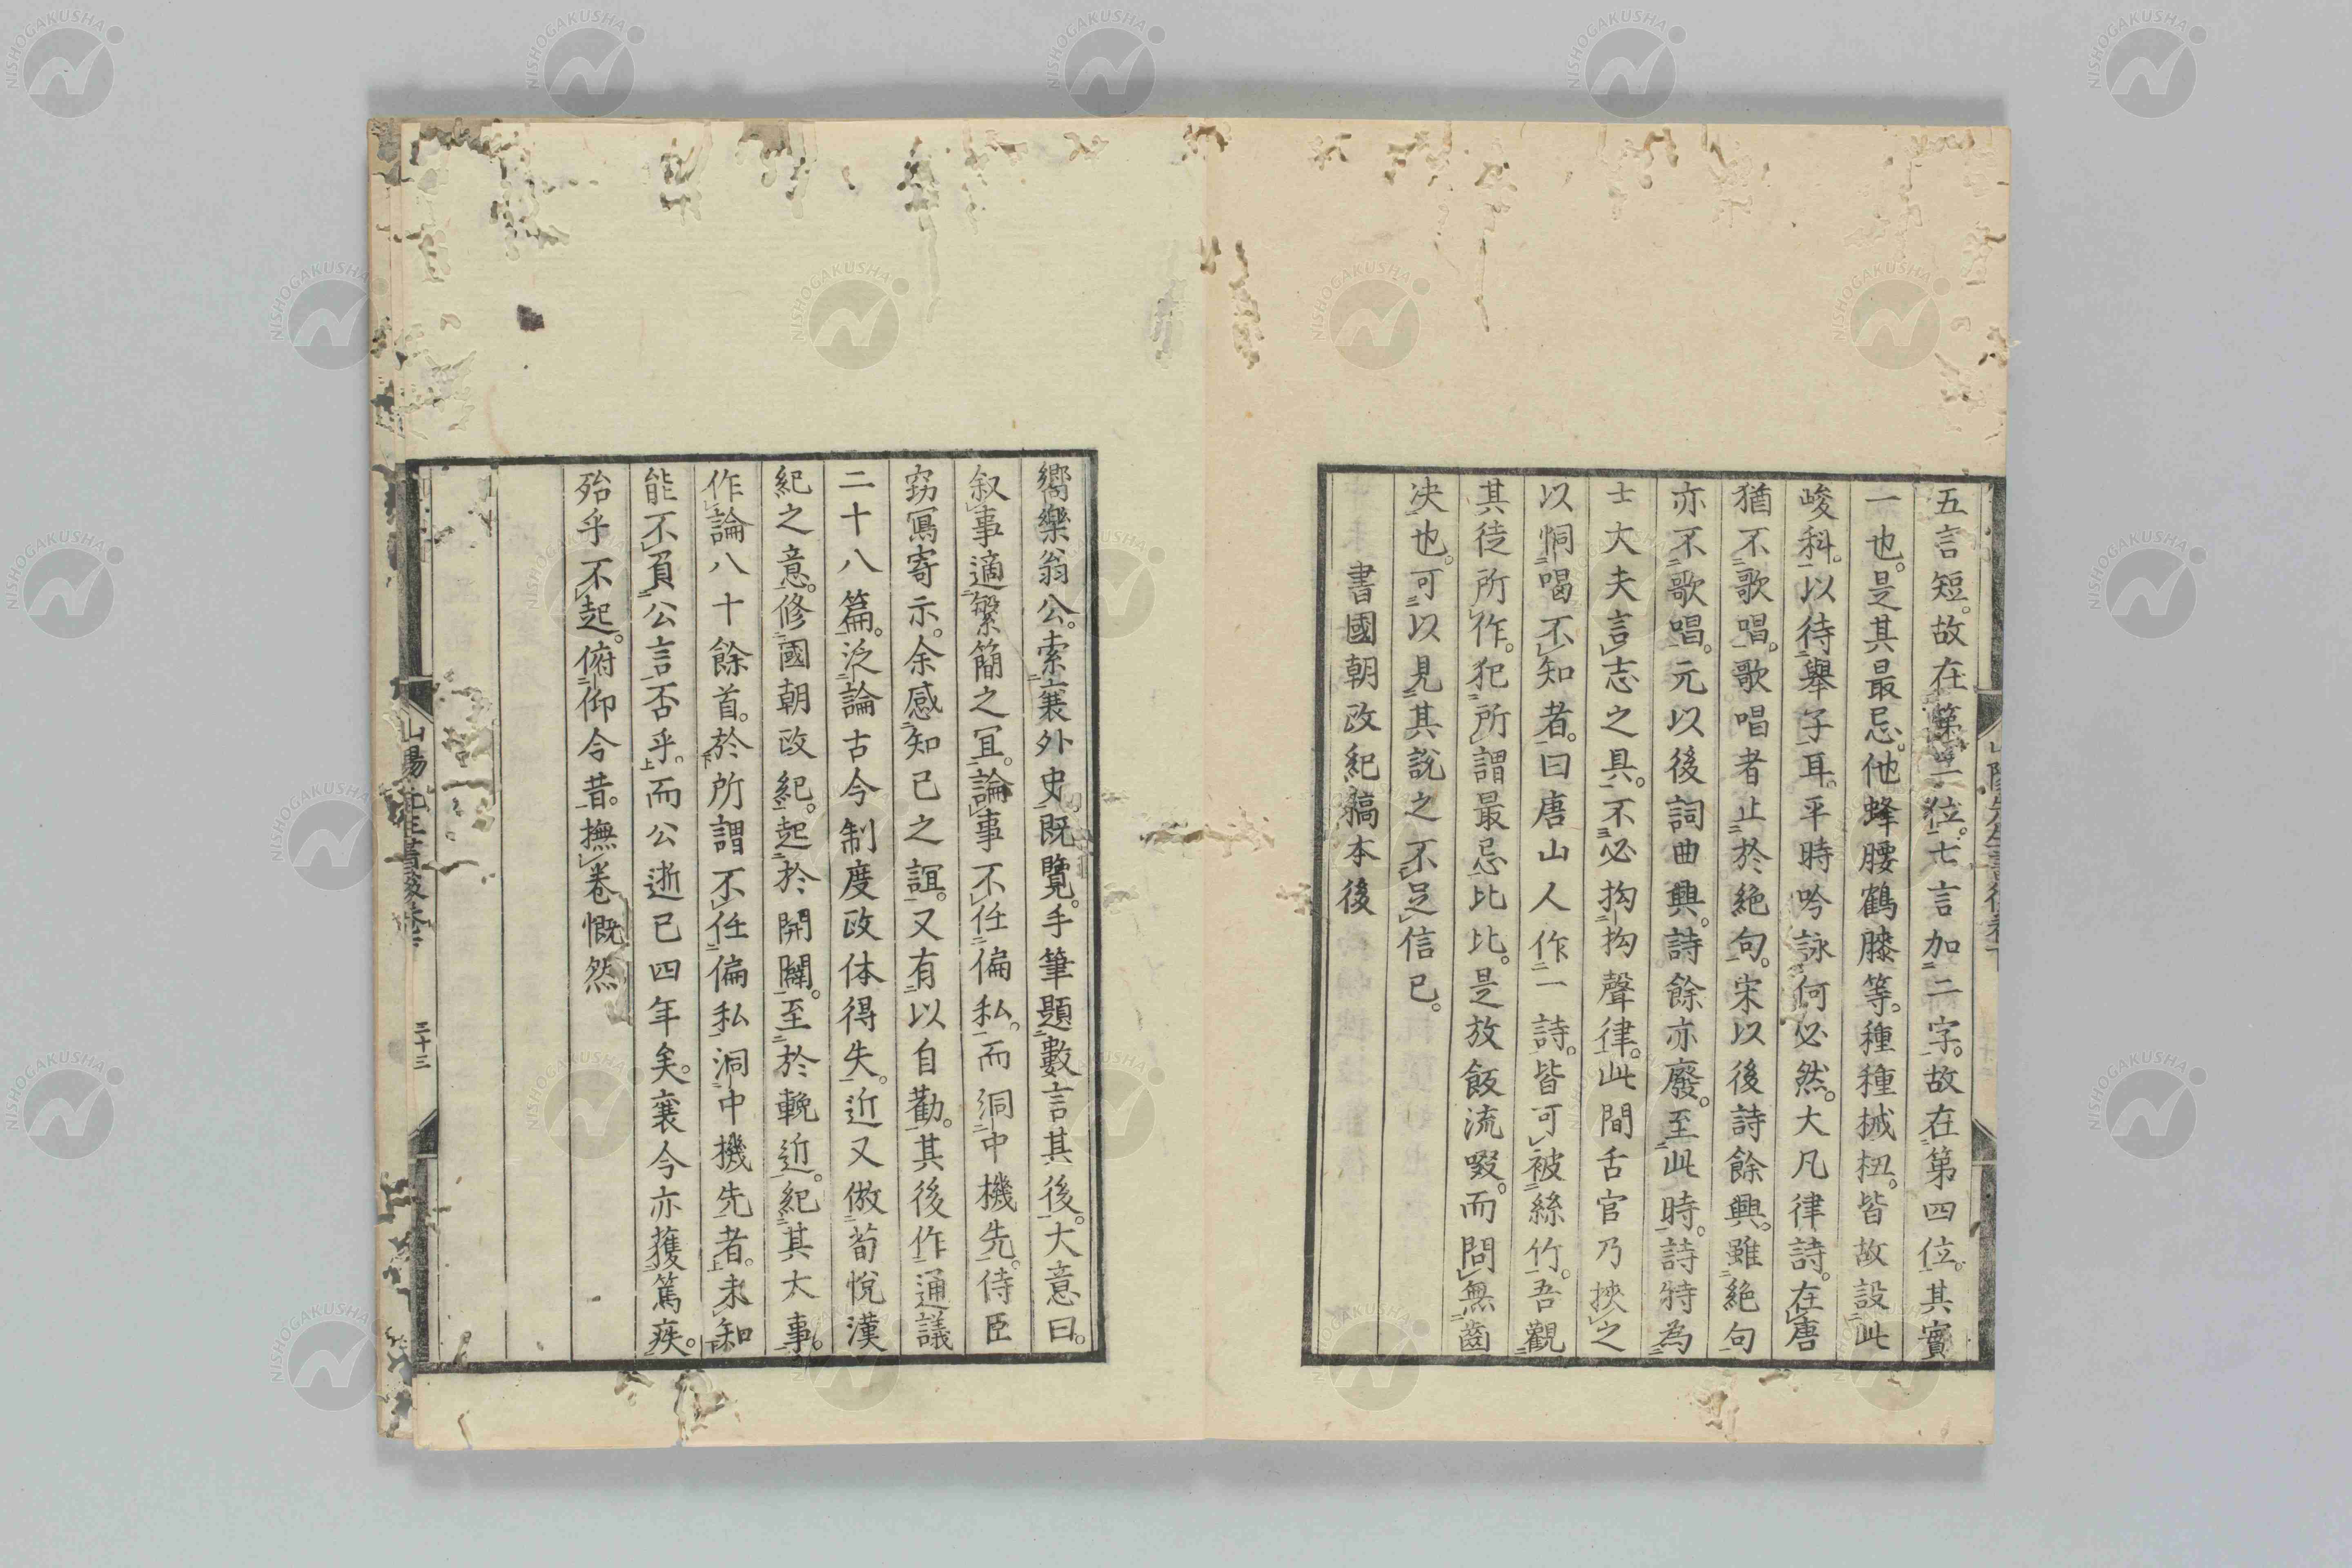 五言短。故在第三位。七言加二字。故在第四位。其實
一也。是其最忌。他蜂腰鶴膝等。種種械杻。皆故設此
峻科。以待舉子耳。平時吟詠何必然。大凡律詩。在唐
猶不歌唱。歌唱者止於絶句。宋以後詩餘興。雖絶句
亦不歌唱。元以後詞曲興。詩餘亦廢。至此時。詩特為
士大夫言志之具。不必拘拘聲律。此間舌官乃挾之
以恫喝不知者。曰唐山人作一詩。皆可被絲竹。吾觀
其徒所作。犯所謂最忌比比。是放飯流歠。而問無齒
决也。可以見其說之不足信已。
書國朝政紀稿本後
嚮樂翁公。索襄外史。既覽。手筆題數言其後。大意曰。
叙事適繁簡之冝。論事不任偏私。而洞中機先。侍臣
窃寫寄示。余感知己之誼。又有以自勸。其後作通議
二十八篇。泛論古今制度政体得失。近又倣荀悅漢
紀之意。修國朝政紀。起於開闢。至於輓近。紀其大事。
作論八十餘首。於所謂不任偏私洞中機先者。未知
能不負公言否乎。而公逝已四年矣。襄今亦獲篤疾。
殆乎不起。俯仰今昔。撫卷慨然
三十三
NISHOGAKUSHA